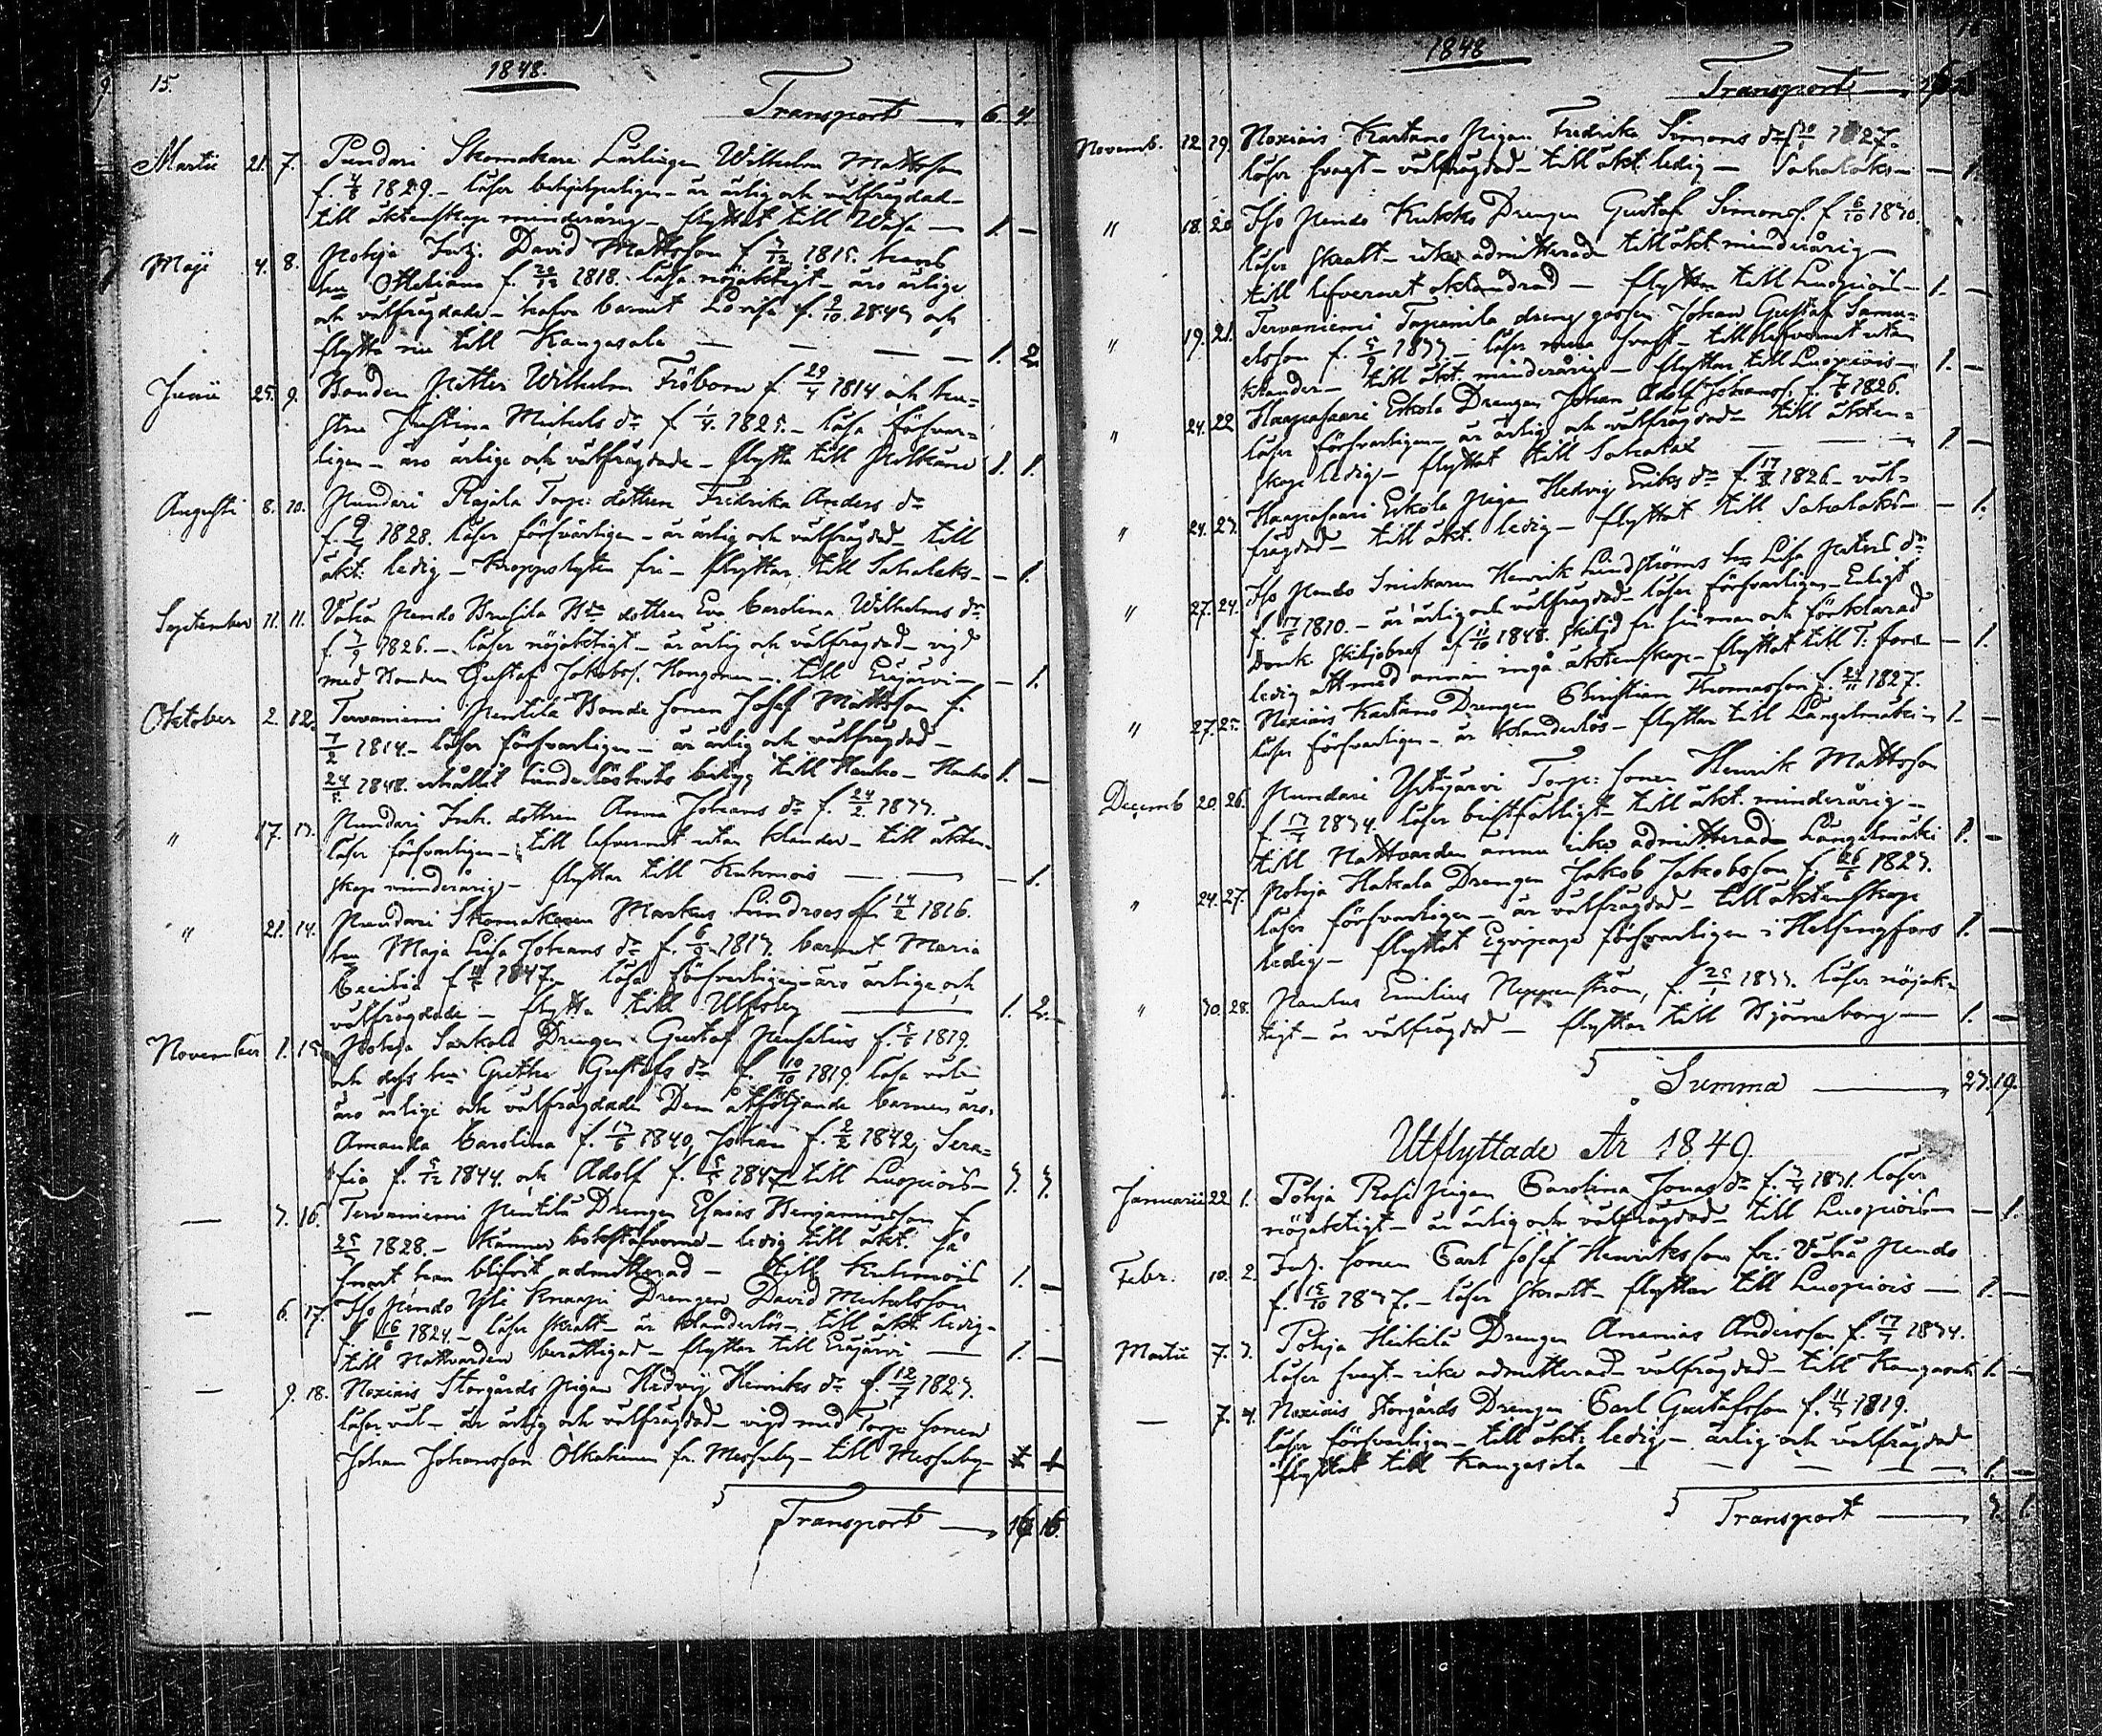 15. 1848.
Transport — 6. 4.
Martii 21. 7. Pundari Skomakare Lärlingen Wilhelm Mattsson
f. 4/8 1829. – läser behjelpeligen – är ärlig och välfrägdad –
till äktenskap minderårig – flyttat till Wasa — 1. —
Maji 4. 8. Pohja Inh: David Mattsson f. 1815. hans
hu Othéliana f. 20/12 1818. läsa nöjaktigt – äro ärlige
och välfrägdade – hafva barnet Lovisa f. 2/10 1843 och
flytta nu till Kangasala — — — — 1. 2.
Junii 25. 9. Bonden Petter Wilhelm Fröbom f. 29/4 1814 och hu-
stru Justina Michels dr f. 1/4 1825. – läsa försvar-
ligen – äro ärlige och välfrägdade – flytta till Pälkäne 1. 1.
Augusti 8. 10. Pundari Rajala Torp: dottren Fredrika Anders dr
f. 1828. läser försvarligen – är ärlig och välfrägdad – till
äkt: ledig – kroppslyten fri – flyttar till Sahalaks – — 1.
September 11. 11. Vähä Pendo Brusila Bde dottren Eva Carolina Wilhelms dr
f. 1826. – läser nöjaktigt – är ärlig och välfrägdad – vigd
med Bonden Gustaf Jakobss. Hongonen – till Eräjärvi – — 1.
Oktober 2. 12. Tervaniemi Pentilä Bonde sonen Josef Mattsson f.
7/2 1814. – läser försvarligen – är ärlig och välfrägdad –
1848 erhållit hinderlöshets betyg till Hauho – Hauho 1. —
" 17. 13. Pundari Inh. dottren Anna Johans dr f. 24/2 1833.
läser försvarligen – till lefvernet utan klander – till äkten-
skap minderårig – flyttar till Kuhmois — — — 1.
" 21. 14. Pundari Skomakaren Markus Lindroos f. 14/2 1816.
hu Maja Lisa Johans dr f. 1813. barnet Maria
Cecilia f. 1847. läsa försvarligen – äro ärlige och
välfrägdade – flytta till Ulfsby — 1. 2.
November 1. 15. Pohja Sarkola Drengen Gustaf f. 1819.
och dess hu Gretha Gustafs dr f. 10/10 1819. läsa väl –
äro ärlige och välfrägdade. Dem åtföljande barnen äro.
Amanda Carolina f. 1840, Johan f. 2/2 1842, Sera-
fia f. 5/12 1844. och Adolf f. 1847 till Luopiois – 3. 3.
— 3. 16. Tervaniemi Pentilä Drengen Esaias Benjaminsson f.
1828. – känner bokstäfverne – ledig till äkt. så
snart han blifvit admitterad – till Kuhmois 1. —
— 6. 17. Iso Pendo Yli Knaapi Drengen David Michelsson
f. 16/6 1824. – läser skralt – är klanderlös – till äkt. ledig –
till Nattvarden berättigad – flyttar till Eräjärvi — 1. —
— 9. 18. Noxiais Storgårds Pigan Hedvig Henriks dr f. 12/7 1823.
läser väl – är ärlig och välfrägdad – vigd med Torp: sonen
Johan Johansson Olkahinen fr. Messuby – till Messuby –
Transport — 16. 16.
1848
Transport —
Novemb. 12. 19. Noxiais Kartano Pigan Fredrika Simons dr f. 1827.
läser svagt – välfrägdad – till äkt. ledig – Sahalaks – — 1.
" 18. 20. Iso Pendo Kukko Drengen Gustaf Simonss. f. 6/10 1830.
läser skralt – icke admitterad – till äkt. minderårig –
till lefvernet oklandrad – flyttar till Luopiois – 1. —
" 19. 21. Tervaniemi Tapanila dreng gossen Johan Gustaf Samu-
elsson f. 1833. – läser svagt – till lefvernet utan
klander – till äkt. minderårig – flyttar till Luopiois – 1. —
" 24. 22. Haapasaari Eskola Drengen Johan Adolf Johanss. f. 1826.
läser försvarligen – är ärlig och välfrägdad – till äkten-
skap ledig – flyttat till Sahalax — — 1. —
" 24. 23. Haapasaari Eskola Pigan Hedvig Eriks dr f. 1826 – väl-
frägdad – till äkt. ledig – flyttat till Sahalaks – — 1.
" 27. 24. Iso Pendo Snickaren Henrik Lundströms hu Lisa Peters dr
f. 1810. – är ärlig och välfrägdad – läser försvarligen – Enligt
Domk. skiljobref af 11/10 1848 skiljd fr. sin man och förklarad
ledig att med annan ingå äktenskap – flyttat till T. fors – — 1.
" 27. 25. Noxiais Kartano Drengen Christian Thomasson f. 24/11 1827.
läser försvarligen – är klanderlös – flyttar till Längelmäki – 1. —
Decemb. 20. 26. Pundari Yltjärvi Torp: sonen Henrik Mattsson
f. 1834. läser bristfälligt – till äkt. minderårig –
till Nattvarden ännu icke admitterad – Längelmäki 1. —
" 24. 27. Pohja Hakala Drengen Jakob Jakobsson f. 26/6 1823.
läser försvarligen – är välfrägdad – till äktenskap
ledig – flyttat Eqvipage i Helsingfors 1. —
" 30. 28. Paulus Emilius f. 1833. läser nöjak-
tigt – är välfrägdad – flyttar till Björneborg — 1. —
Summa — 23. 19.
Utflyttade År 1849.
Januarii 22. 1. Pohja Rasi Pigan Carolina Jonas dr f. 1831. läser
nöjaktigt – är ärlig och välfrägdad – till Luopiois – — 1.
Febr. 10. 2. Inh. sonen Carl Josef Henriksson fr. Vähä Pendo
f. 1837. – läser skralt – flyttar till Luopiois — 1. —
Martii 7. 3. Pohja Heikkilä Drengen Ananias Andersson f. 1834.
läser svagt – icke admitterad – välfrägdad – till Kangasala 1. —
— 7. 4. Noxiais Storgårds Drengen Carl Gustafsson f. 1819.
läser försvarligen – till äkt: ledig – ärlig och välfrägdad
flyttat till Kangasala — — — — 1. —
Transport — 3. 1.